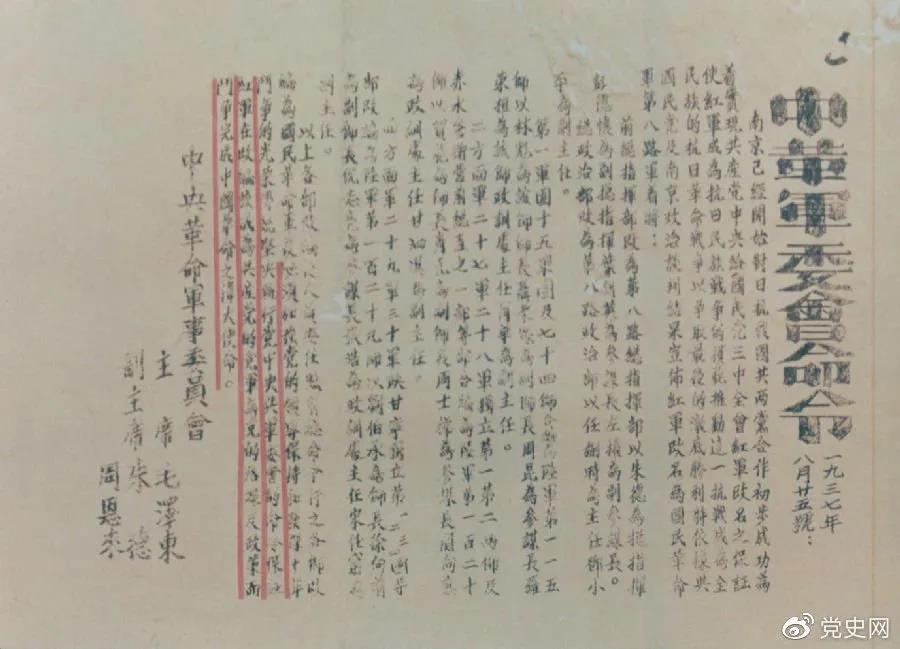 中革軍委會命令
一九三七年
八月廿五號：
南京已經開始對日抗戰國共兩黨合作初步成功為
着實現共產党中央給國民党三中全會紅軍改名之保証
使紅軍成為抗日民族戰争的模範推動這一抗戰成為全
民族的抗日革命戰争以争取最後的澈底勝利特依據與
國民党及南京政治談判結果宣佈紅軍改名為國民革命
軍第八路軍着將：
前總指揮部改為第八路總指揮部以朱德為總指揮
彭德懷為副總指揮葉劍英為參謀長左權為副參謀長。
總政治部改為第八路政治部以任弼時為主任鄧小
平為副主任。
第一軍團十五軍團及七十四師合編為陸軍第一一五
師以林彪為該師師長聶榮臻為副師長周昆為參謀長羅
榮桓為該師政訓處主任蕭華為副主任。
二方面軍二十七軍二十八軍獨立第一第二兩師及
赤水警衛營前總直之一部等部合編為陸軍第一百二十
師以賀龍為師長蕭克為副師長周士第為參謀長關向應
為政訓處主任甘泗淇為副主任。
四方面軍二十九軍三十軍陕甘寧獨立第一二三四等
部改編為陸軍第一百二十九師以劉伯承為師長徐向前
為副師長倪志亮為參謀長張浩為政訓處主任宋任窮為
副主任。
以上各部改編後人員委任照前總命令行之各師改
編為國民革命軍後必須加強党的領導保持和發揚十年
鬥争的光榮傳統堅決執行党中央與軍委會的命令保証
紅軍在改編後成為共產党的党軍為党的路線及政策而
鬥争完成中國革命之偉大使命。
中央革命軍事委員會
主席毛澤東
副主席朱德
周恩來
党史网